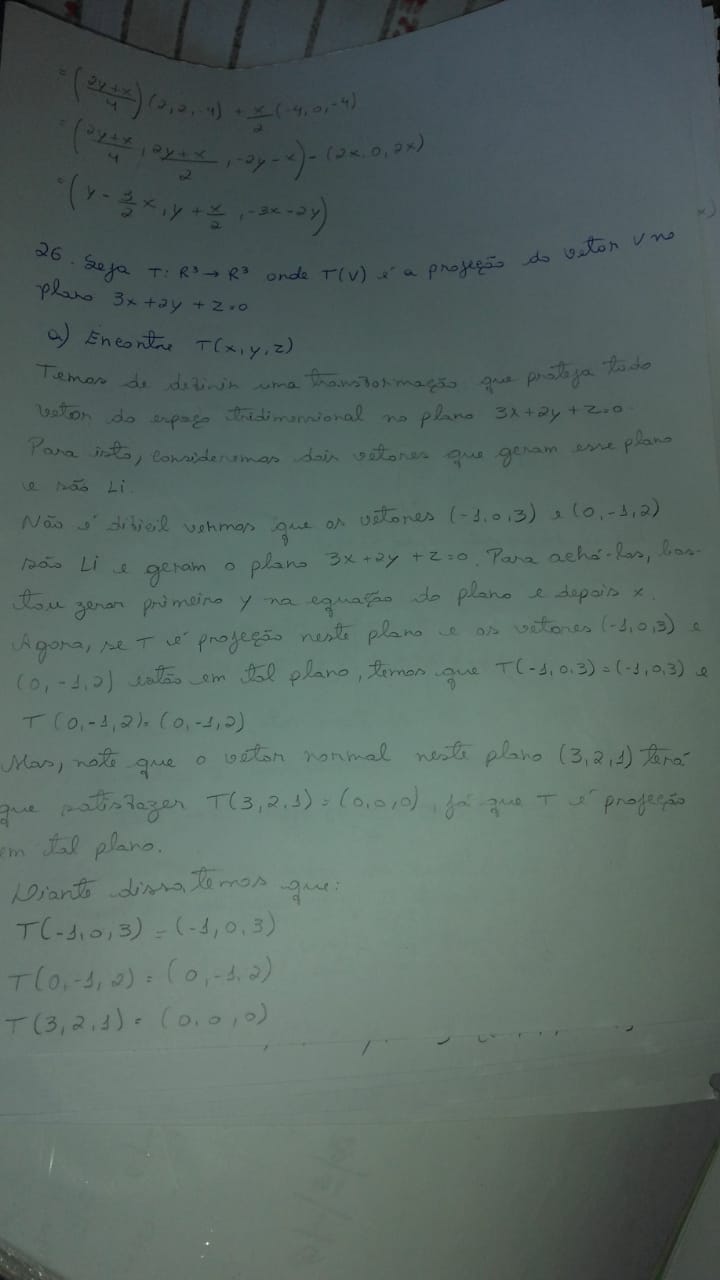 = (2y+x/4) (2, 2, -4) + x/2 (-4, 0, -4)
= (2y+x/4, 2y+x/2, -2y-x) - (2x, 0, 2x)
= (y - 3/2 x, y + x/2, -3x-2y)
26. Seja T: R³→R³ onde T(V) é a projeção do vetor V no
plano 3x+2y+z=0
a) Encontre T(x,y,z)
Temos de definir uma transformação que proteja todo
vetor do espaço tridimensional no plano 3x+2y+z=0.
Para isto, consideremos dois vetores que geram esse plano
e são Li.
Não é difícil vermos que os vetores (-1,0,3) e (0,-1,2)
são Li e geram o plano 3x+2y+z=0. Para achá-los, bas-
tou zerar primeiro y na equação do plano e depois x.
Agora, se T é projeção neste plano e os vetores (-1,0,3) e
(0,-1,2) estão em tal plano, temos que T(-1,0,3)=(-1,0,3) e
T(0,-1,2)=(0,-1,2)
Mas, note que o vetor normal neste plano (3,2,1) terá
que satisfazer T(3,2,1)=(0,0,0), já que T é projeção
em tal plano.
Diante disso, temos que:
T(-1,0,3)=(-1,0,3)
T(0,-1,2)=(0,-1,2)
T(3,2,1)=(0,0,0)